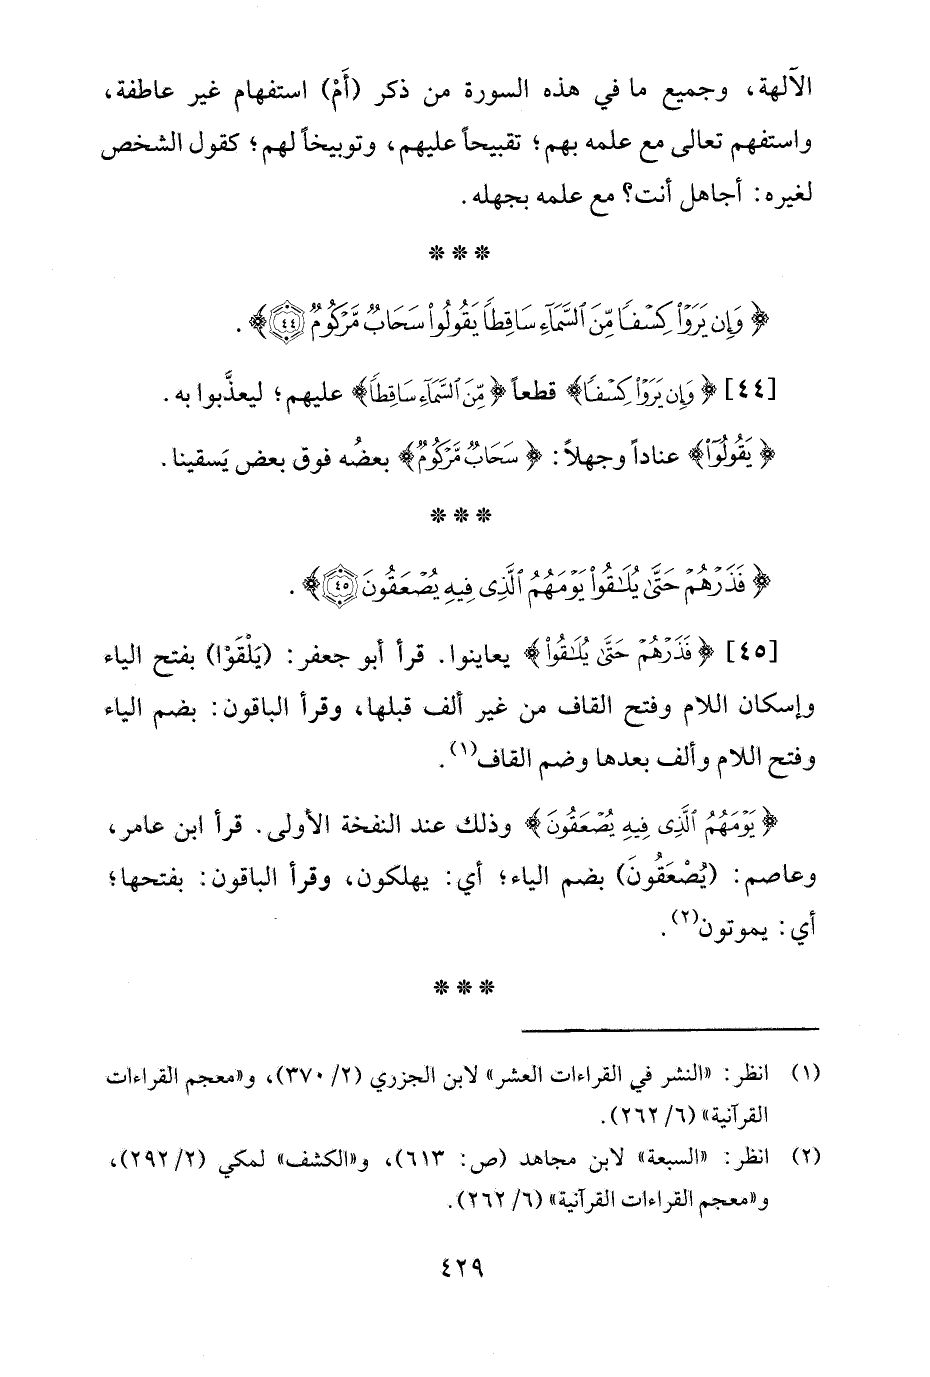 الآلهة، وجميع ما في هذه السورة من ذكر (أَمْ) استفهام غير عاطفة،
واستفهم تعالى مع علمه بهم؛ تقبيحاً عليهم، وتوبيخاً لهم؛ كقول الشخص
لغيره: أجاهل أنت؟ مع علمه بجهله.
* * *
﴿وَإِن يَرَوْا۟ كِسْفًا مِّنَ ٱلسَّمَآءِ سَاقِطًا يَقُولُوا۟ سَحَابٌ مَّرْكُومٌ ٤٤﴾.
[٤٤] ﴿وَإِن يَرَوْا۟ كِسْفًا﴾ قطعاً ﴿مِّنَ ٱلسَّمَآءِ سَاقِطًا﴾ عليهم؛ ليعذَّبوا به.
﴿يَقُولُوا۟﴾ عناداً وجهلاً: ﴿سَحَابٌ مَّرْكُومٌ﴾ بعضُه فوق بعض يَسقينا.
* * *
﴿فَذَرْهُمْ حَتَّىٰ يُلَـٰقُوا۟ يَوْمَهُمُ ٱلَّذِى فِيهِ يُصْعَقُونَ ٤٥﴾.
[٤٥] ﴿فَذَرْهُمْ حَتَّىٰ يُلَـٰقُوا۟﴾ يعاينوا. قرأ أبو جعفر: (يَلْقَوْا) بفتح الياء
وإسكان اللام وفتح القاف من غير ألف قبلها، وقرأ الباقون: بضم الياء
وفتح اللام وألف بعدها وضم القاف(١).
﴿يَوْمَهُمُ ٱلَّذِى فِيهِ يُصْعَقُونَ﴾ وذلك عند النفخة الأولى. قرأ ابن عامر،
وعاصم: (يُصْعَقُونَ) بضم الياء؛ أي: يهلكون، وقرأ الباقون: بفتحها؛
أي: يموتون(٢).
* * *
(١) انظر: «النشر في القراءات العشر» لابن الجزري (٢/ ٣٧٠)، و«معجم القراءات
القرآنية» (٦/ ٢٦٢).
(٢) انظر: «السبعة» لابن مجاهد (ص: ٦١٣)، و«الكشف» لمكي (٢/ ٢٩٢)،
و«معجم القراءات القرآنية» (٦/ ٢٦٢).
٤٢٩